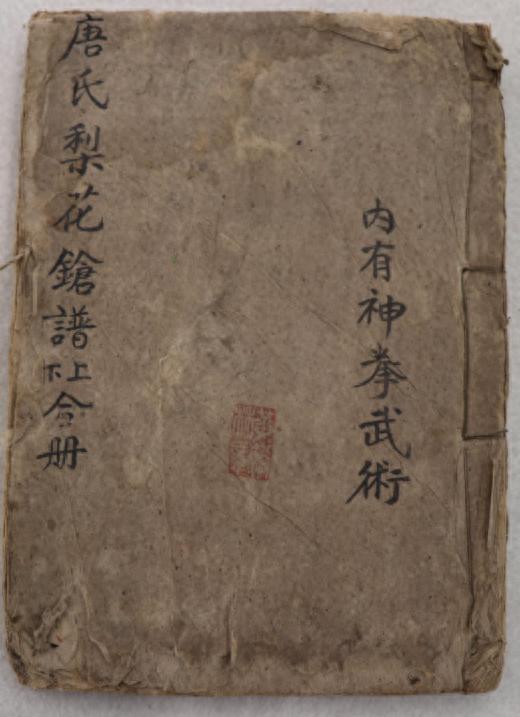 內有神拳武術
唐氏梨花鎗譜上下合册